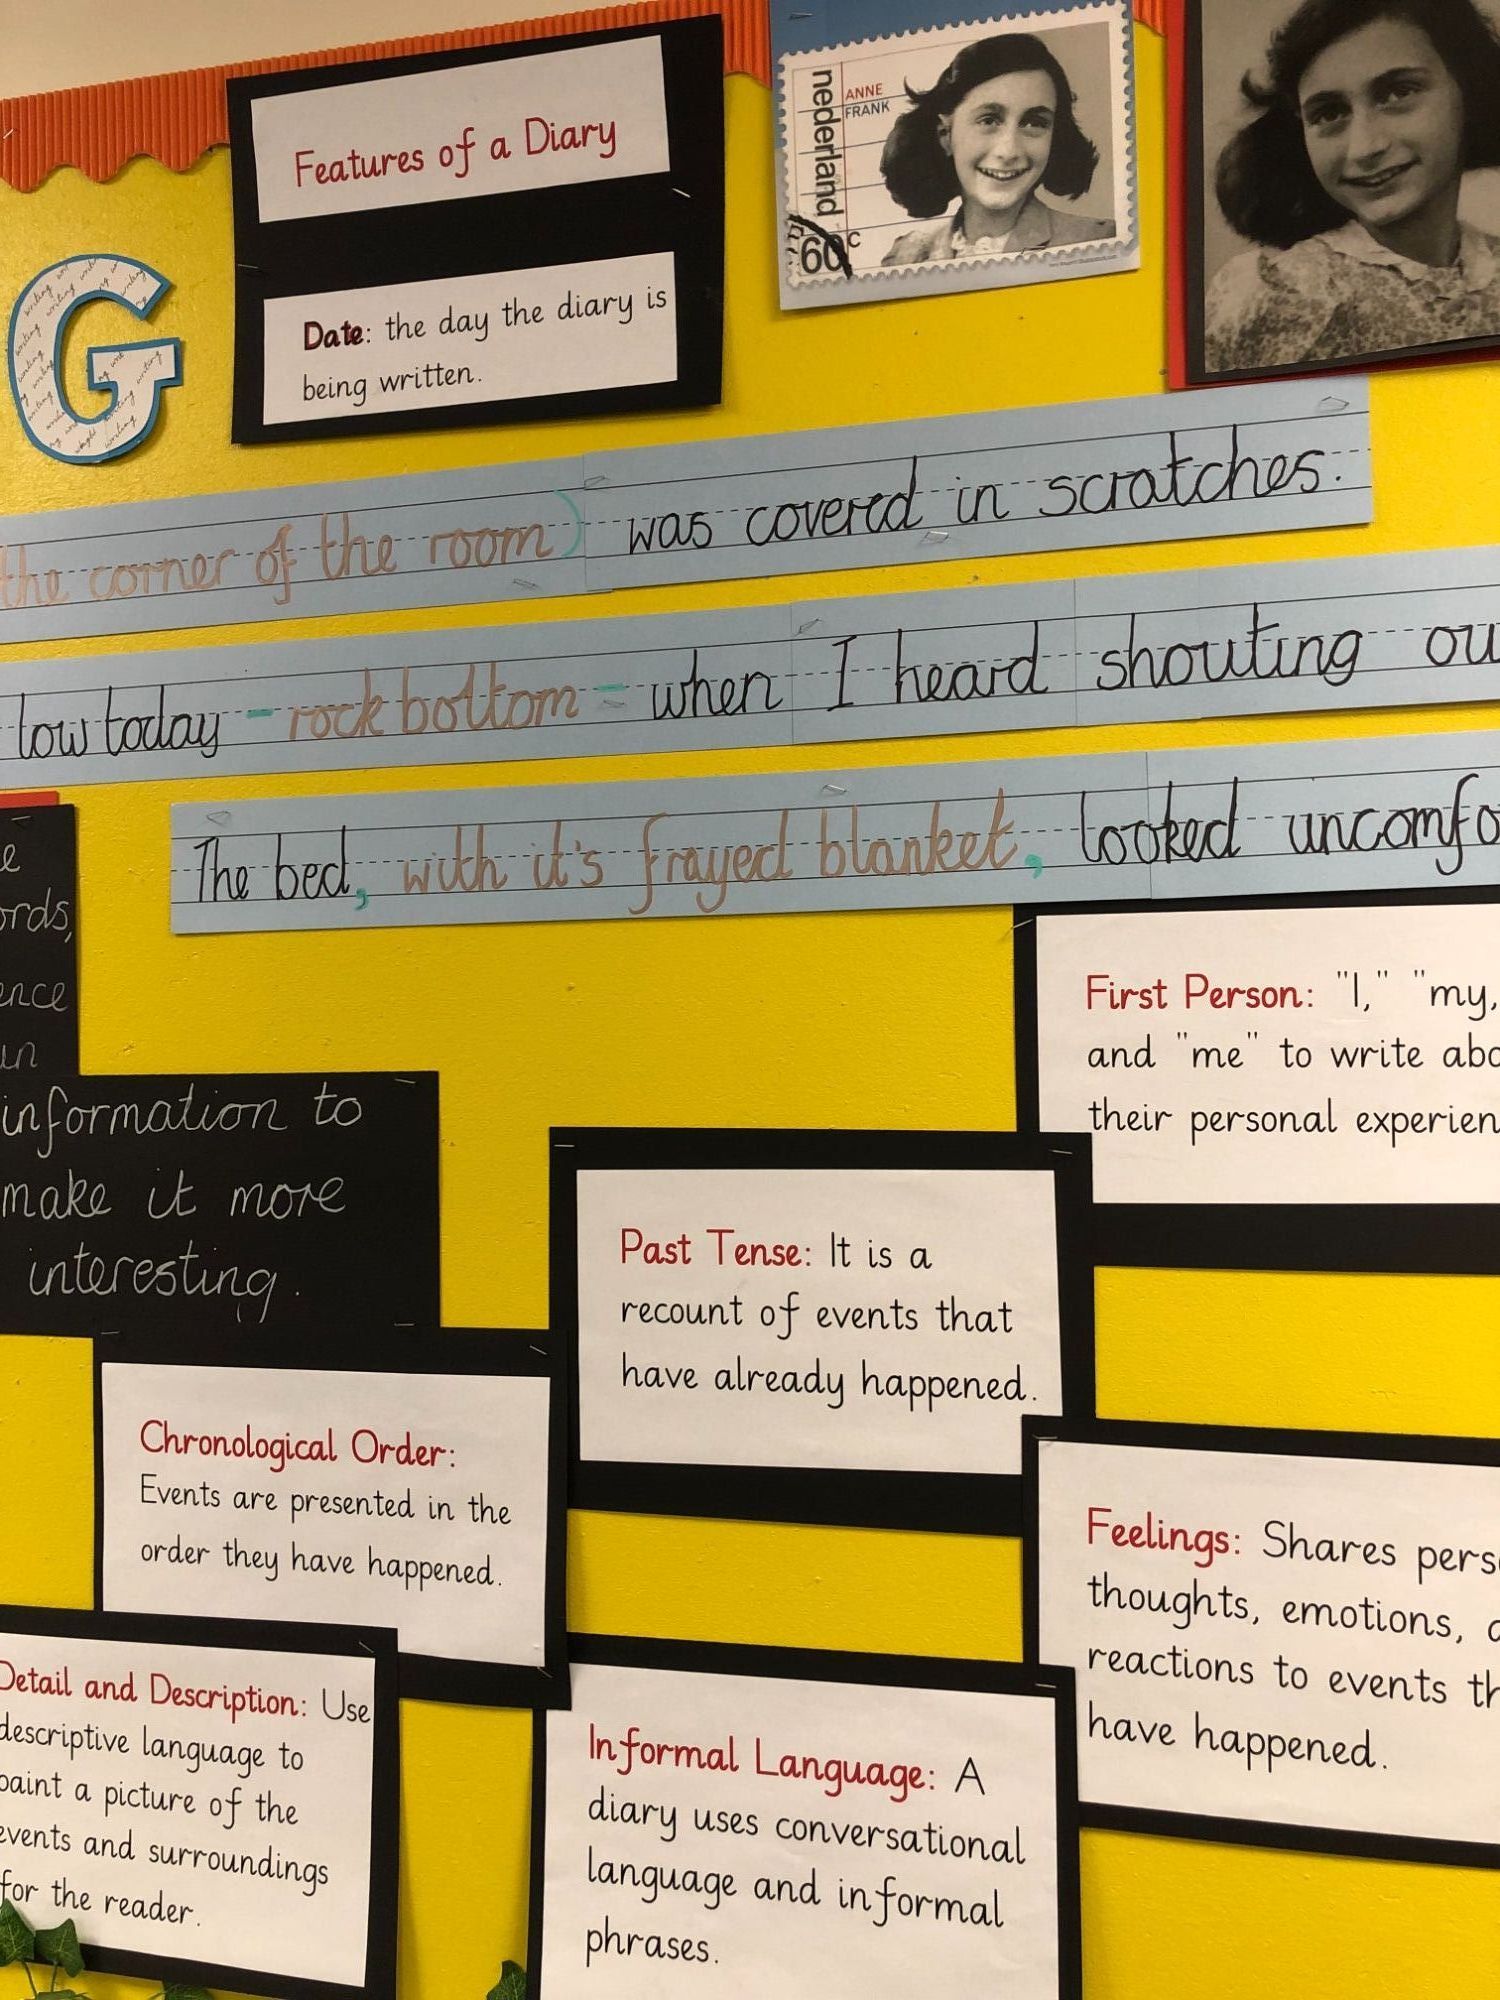 Features of a Diary
Date: the day the diary is
being written.
nederland
ANNE
FRANK
60c
G
writing writing writing
the corner of the room) was covered in scratches.
low today - rock bottom - when I heard shouting
The bed, with it's frayed blanket, looked
information to
make it more
interesting.
First Person: "I," "my,
and "me" to write
their personal
Past Tense: It is a
recount of events that
have already happened.
Chronological Order:
Events are presented in the
order they have happened.
Feelings: Shares
thoughts, emotions,
reactions to events
have happened.
Detail and Description: Use
descriptive language to
paint a picture of the
events and surroundings
for the reader.
Informal Language: A
diary uses conversational
language and informal
phrases.